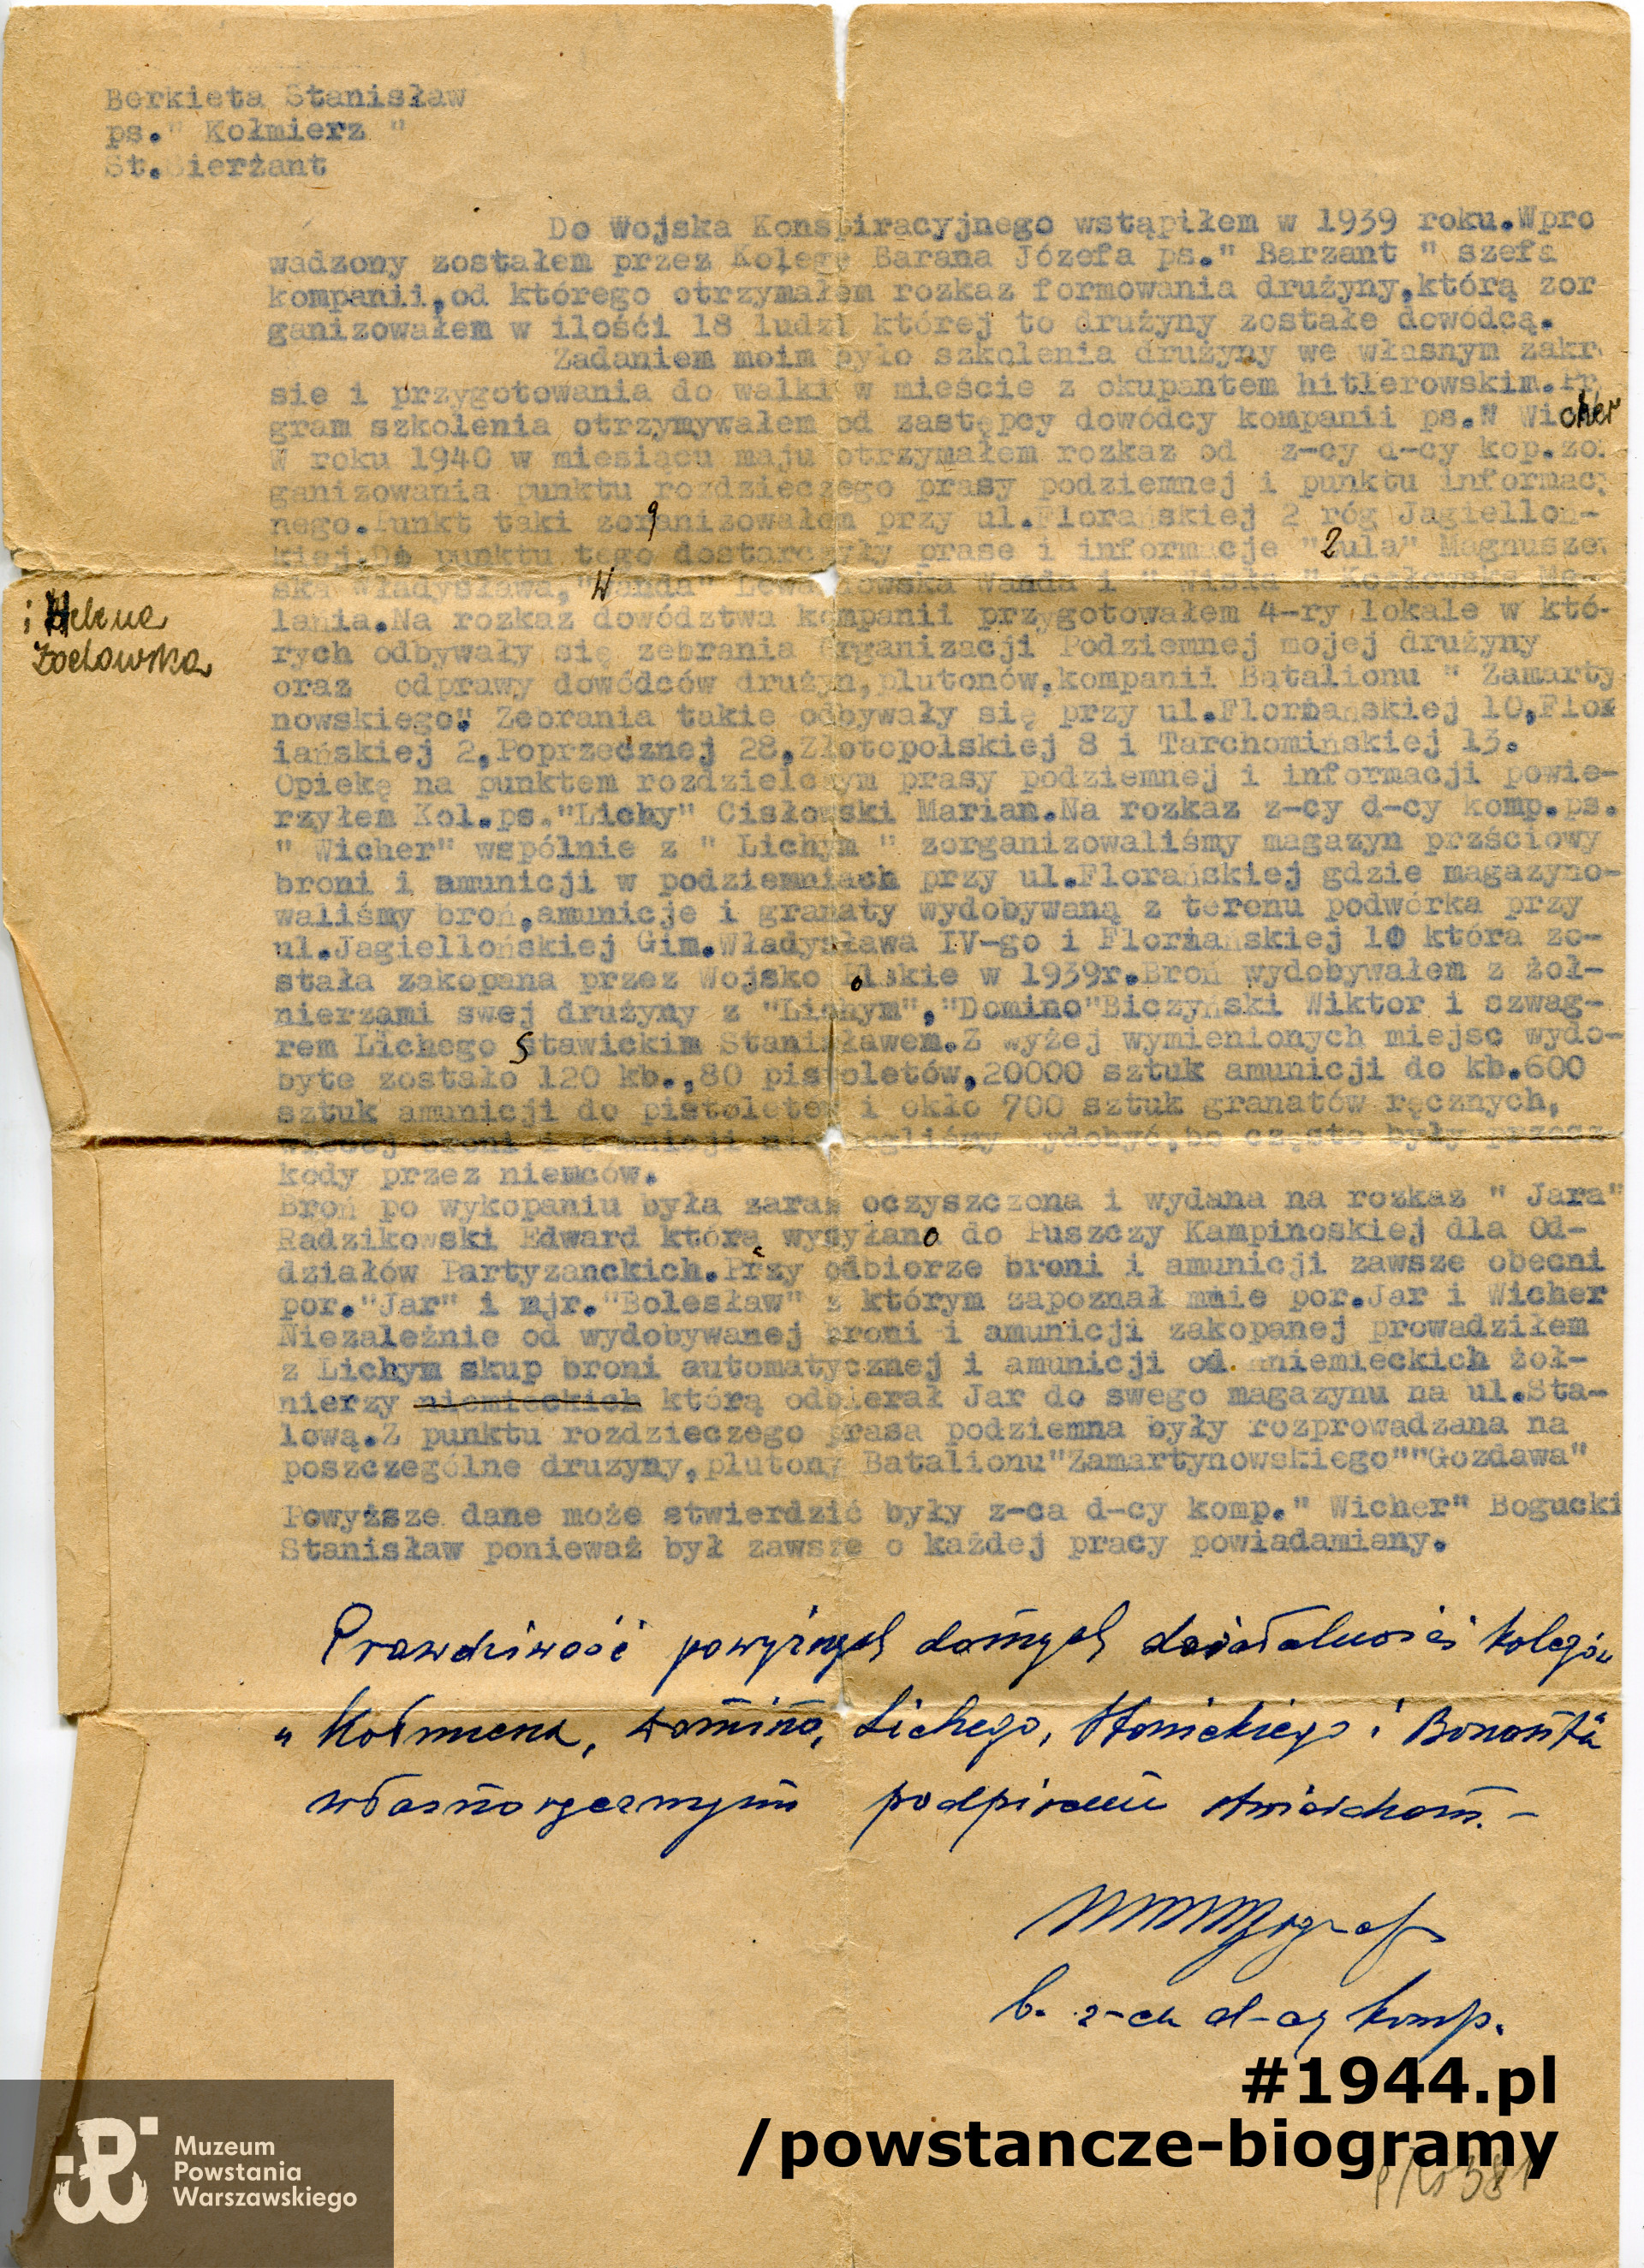 Berkieta Stanisław
ps." Kołmierz "
St.Sierżant
Do Wojska Konspiracyjnego wstąpiłem w 1939 roku.Wpro
wadzony zostałem przez Kolegę Barana Józefa ps." Barzant " szefa
kompanii,od którego otrzymałem rozkaz formowania drużyny,którą zor
ganizowałem w ilośći 18 ludzi której to drużyny zostałe dowódcą.
Zadaniem moim było szkolenia drużyny we własnym zakr
sie i przygotowania do walki w mieście z okupantem hitlerowskim.Pr
gram szkolenia otrzymywałem od zastępcy dowódcy kompanii ps.W Wicher
W roku 1940 w miesiącu maju otrzymałem rozkaz od z-cy d-cy kop.zor
ganizowania punktu rozdzieczego prasy podziemnej i punktu informacy
nego.Punkt taki zorganizowałem przy ul.Florańskiej 2 róg Jagiellon-
kiej.Do punktu tego dostarczyły prase i informacje "Zula" Magnuszew
ska Władysława,"Wanda" Lewandowska Wanda i " Wisła " Kozłowska He-
i Helena
lania.Na rozkaz dowództwa kompanii przygotowałem 4-ry lokale w któ-
rych odbywały się zebrania Organizacji Podziemnej mojej drużyny
oraz odprawy dowódców drużyn,plutonów,kompanii Batalionu " Zamarty
nowskiego". Zebrania takie odbywały się przy ul.Floriańskiej 10,Flor
iańskiej 2,Poprzecznej 28,Złotopolskiej 8 i Tarchomińskiej 13.
Opiekę na punktem rozdzielczym prasy podziemnej i informacji powie-
rzyłem Kol.ps."Lichy" Cisłowski Marian.Na rozkaz z-cy d-cy komp.ps.
" Wicher" wspólnie z " Lichym " zorganizowaliśmy magazyn prześciowy
broni i amunicji w podziemniach przy ul.Florańskiej gdzie magazyno-
waliśmy broń,amunicje i granaty wydobywaną z terenu podwórka przy
ul.Jagiellońskiej Gim.Władysława IV-go i Floriańskiej 10 która zo-
stała zakopana przez Wojsko Polskie w 1939r.Broń wydobywałem z żoł-
nierzami swej drużyny z "Lichym","Domino"Biczyński Wiktor i szwag-
rem Lichego Stawickim Stanisławem.Z wyżej wymienionych miejsc wydo-
byte zostało 120 kb.,80 pistoletów,20000 sztuk amunicji do kb.600
sztuk amunicji do pistoletów i okło 700 sztuk granatów ręcznych,
więcej broni i amunicji nie mogliśmy wydobyć,bo często były przesz
kody przez niemców.
Broń po wykopaniu była zaraz oczyszczona i wydana na rozkaz " Jara"
Radzikowski Edward którą wysyłano do Puszczy Kampinoskiej dla Od-
działów Partyzanckich.Przy odbiorze broni i amunicji zawsze obecni
por."Jar" i mjr."Bolesław" z którym zapoznał mnie por.Jar i Wicher
Niezależnie od wydobywanej broni i amunicji zakopanej prowadziłem
z Lichym skup broni automatycznej i amunicji od niemieckich żoł-
nierzy niemieckich którą odbierał Jar do swego magazynu na ul.Sta-
lową.Z punktu rozdzieczego prasa podziemna były rozprowadzana na
poszczególne druzyny,plutony Batalionu"Zamartynowskiego""Gozdawa"
Powyższe dane może stwierdzić były z-ca d-cy komp." Wicher" Bogucki
Stanisław ponieważ był zawsze o każdej pracy powiadamiany.
Prawdziwość powyższych danych działalności kolegów
" Kołmierza, Domino, Lichego, Stawickiego i
własnoręcznym podpisem stwierdzam. -
b. z-ca d-cy komp.
#1944.pl
/powstancze-biogramy
Muzeum
Powstania
Warszawskiego